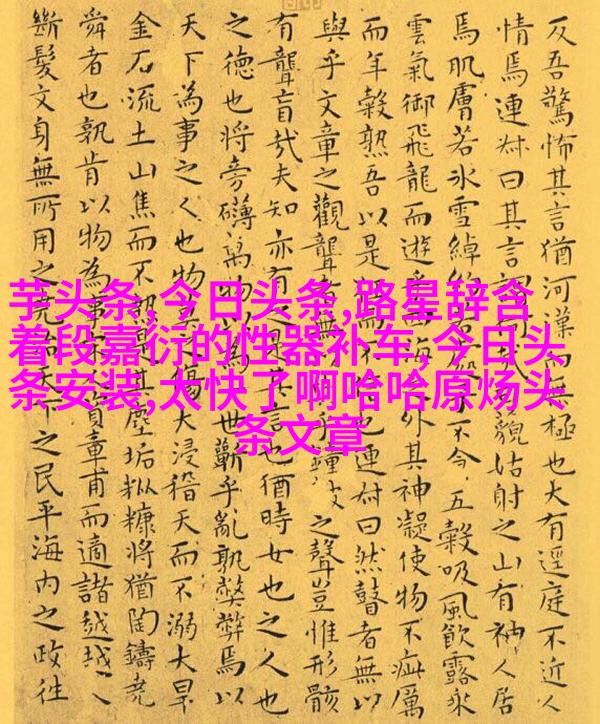 芋头条,今日头条,路星辞含
着段嘉衍的性器补车,今日头
条安装,太快了啊哈哈原炀头
条文章
反吾驚怖其言猶河漢而無極也大有逕庭不近人
情焉連叔曰其言謂何哉貌姑射之山有神人居
焉肌膚若冰雪綽約子不食五穀吸風飲露乘
雲氣御飛龍而遊乎海之外其神凝使物不疵厲
而年穀熟吾以是而不也連叔曰然瞽者無以
與乎文章之觀聾者無乎鐘鼓之聲豈惟形骸
有聾盲哉夫知亦有之是其言也猶時女也之人也
之德也將旁礴萬物以為世蘄乎亂孰弊弊焉以
天下為事之人也物莫之傷大浸稽天而不溺大旱
金石流土山焦而不熱是其塵垢粃糠將猶陶鑄堯
舜者也孰肯以物為事宋資章甫而適諸越越人
斷髮文身無所用之堯治天下之民平海內之政往